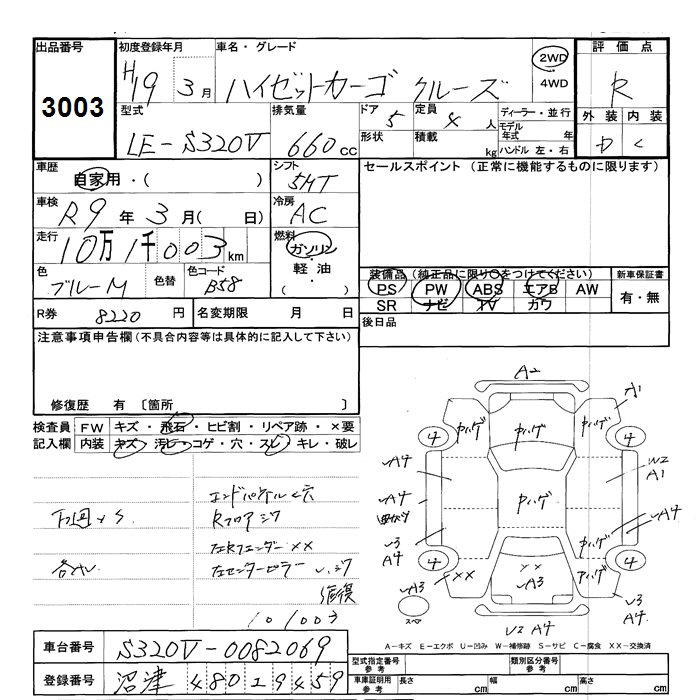 出品番号
3003
初度登録年月
H19 3月
車名・グレード
ハイゼットカーゴ クルーズ
2WD
4WD
評価点
R
外装 内装
D C
型式
LE-S320V
排気量
660cc
ドア 5
定員 4 人
形状
積載 kg
ディーラー・並行
モデル年式 年
ハンドル 左・右
車歴
自家用・( )
シフト
5MT
セールスポイント (正常に機能するものに限ります)
車検
R9年 3月( 日)
冷房
AC
走行
10万1千003km
燃料
ガソリン
軽油
( )
色
ブルーM
色替
色コード
B58
装備品(純正品に限り○をつけてください)
新車保証書
PS PW ABS エアB AW
有・無
SR ナビ TV カワ
R券 8220 円
名変期限 月 日
後日品
注意事項申告欄(不具合内容等は具体的に記入して下さい)
修復歴 有 〔箇所 〕
検査員 FW キズ・飛石・ヒビ割・リペア跡・×要
記入欄 内装 キズ・汚レ・コゲ・穴・スレ・キレ・破レ
エンドパネル 穴
下回り S
Rフロア
左Rフェンダー ××
左センターピラー
修復
101003
A2
A1
4
4
4
4
A4
W2
A1
A4
A4
A4
A3
××
××
A3
A4
スペ
U2 A4
A-キズ E-エクボ U-凹み W-補修跡 S-サビ C-腐食 XX-交換済
車台番号
S320V-0082069
登録番号
沼津 480 1 9459
型式指定番号
参考
類別区分番号
参考
車庫証明用
参考
長さ cm
幅 cm
高さ cm